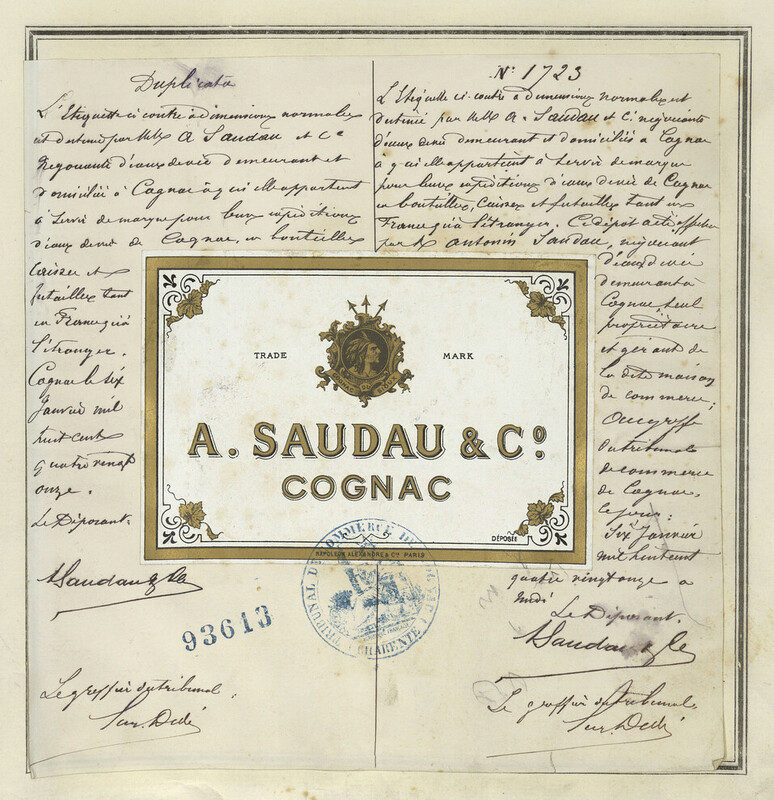 Duplicata
L'Etiquette ci contre a dimensions normales
est destinée par MMrs A Saudau et Cie
Négociants d'eaux de vie demeurant et
domiciliés à Cognac à qui elle appartient
à servir de marque pour leurs expéditions
d'eaux de vie de Cognac, en bouteilles
Caisses et
futailles tant
en France qu'à
l'étranger.
Cognac le six
Janvier mil
huit cent
quatre vingt
onze.
Le Déposant.
A Saudau & Cie
93613
Le greffier du tribunal.
No 1723
L'Etiquette ci-contre a dimensions normales est
destinée par MMrs A. Saudau et Ce négociants
d'eaux de vie demeurant et domiciliés à Cognac
à qui elle appartient à servir de marque
pour leurs expéditions d'eaux de vie de Cognac
en bouteilles, Caisses et futailles tant en
France qu'à l'étranger. Ce dépôt a été effectué
par Mr Antonin Saudau, négociant
d'eaux de vie
demeurant à
Cognac seul
propriétaire
et gérant de
la dite maison
de commerce,
au greffe
du tribunal
de commerce
de Cognac,
ce jour.
Six Janvier
mil huit cent
quatre vingt onze à
midi
Le Déposant.
A Saudau & Cie
Le greffier du tribunal
TRADE MARK
A. SAUDAU & Co.
COGNAC
DÉPOSÉE
NÉPOLEUX ALEXANDRE & Cie PARIS
TRIBUNAL DE COMMERCE DE COGNAC (CHARENTE)